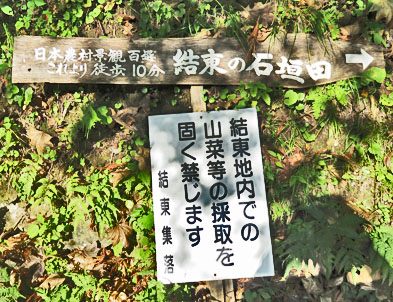 日本農村景観百選
これより徒歩10分
結東の石垣田
結東地内での
山菜等の採取を
固く禁じます
結東集落